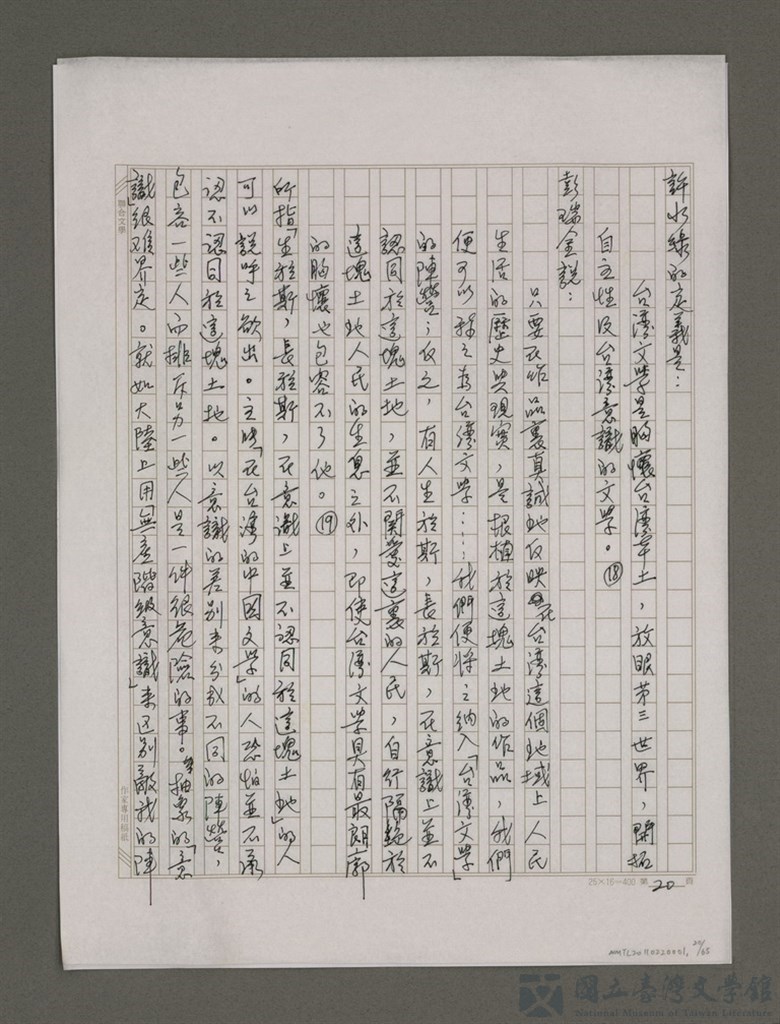 許水綠的定義是：
台湾文學是胸懷台湾本土，放眼第三世界，開拓
自主性及台湾意識的文學。⑱
彭瑞金說：
只要在作品裏真誠地反映在台湾這個地域上人民
生活的歷史與現實，是根植於這塊土地的作品，我們
便可以稱之為台湾文學……我們便將之納入「台湾文學」
的陣營；反之，有人生於斯，長於斯，在意識上並不
認同於這塊土地，並不關愛這裏的人民，自行隔絕於
這塊土地人民的生息之外，即使台湾文學具有最朗廓
的胸懷也包容不了他。⑲
所指「生於斯，長於斯，在意識上並不認同於這塊土地」的人
可以說呼之欲出。主張「在台湾的中国文學」的人恐怕並不承
認不認同於這塊土地。以意識的差別來分成不同的陣營，
包容一些人而排斥另一些人是一件很危險的事。抽象的「意
識」很难界定。就如大陸上用「無產階級意識」來区別敵我的陣
聯合文學
作家專用稿紙
25×16=400 第20頁
NMTL20110220031, 20/65
國立臺灣文學館
National Museum of Taiwan Literature